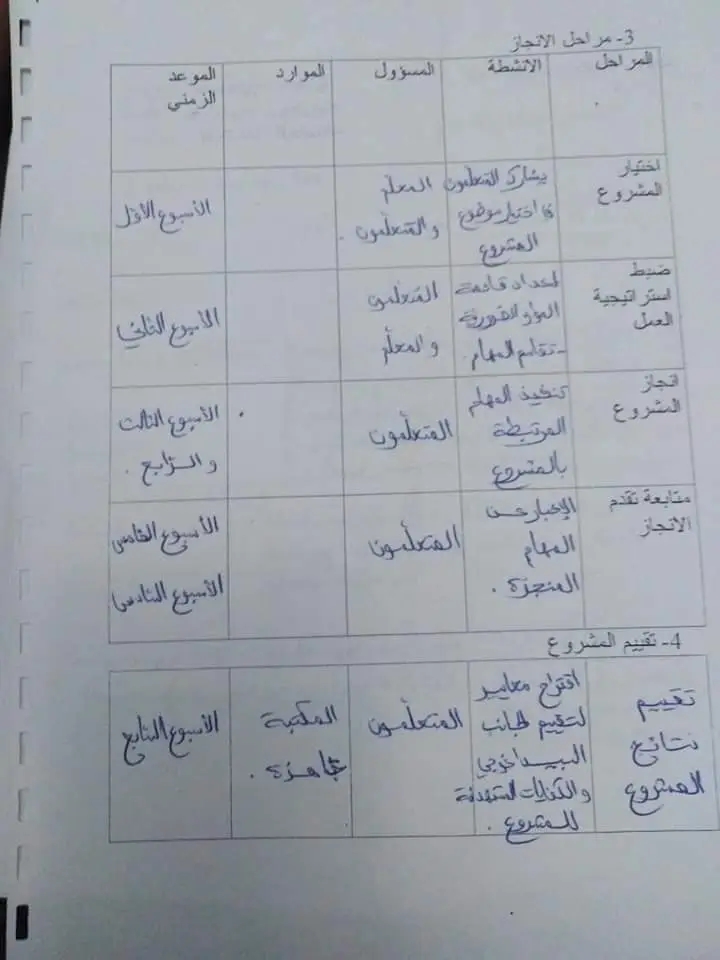 3- مراحل الانجاز
المراحل
الانشطة
المسؤول
الموارد
الموعد
الزمني
اختيار
المشروع
يشارك المتعلمون
في اختيار موضوع
المشروع
المعلم
والمتعلمون.
الأسبوع الأول
ضبط
استراتيجية
العمل
إعداد قائمة
المواد الضرورية
- تقاسم المهام.
المتعلمون
والمعلم
الأسبوع الثاني
انجاز
المشروع
تنفيذ المهام
المرتبطة
بالمشروع
المتعلمون
الأسبوع الثالث
والرابع.
متابعة تقدم
الانجاز
الإخبار عن
المهام
المنجزة.
المتعلمون
الأسبوع الخامس
الأسبوع السادس
4- تقييم المشروع
تقييم
نتائج
المشروع
اقتراح معايير
لتقييم الجانب
البيداغوجي
والكفايات المستهدفة
للمشروع.
المتعلمون
المكتبة
جاهزة.
الأسبوع السابع